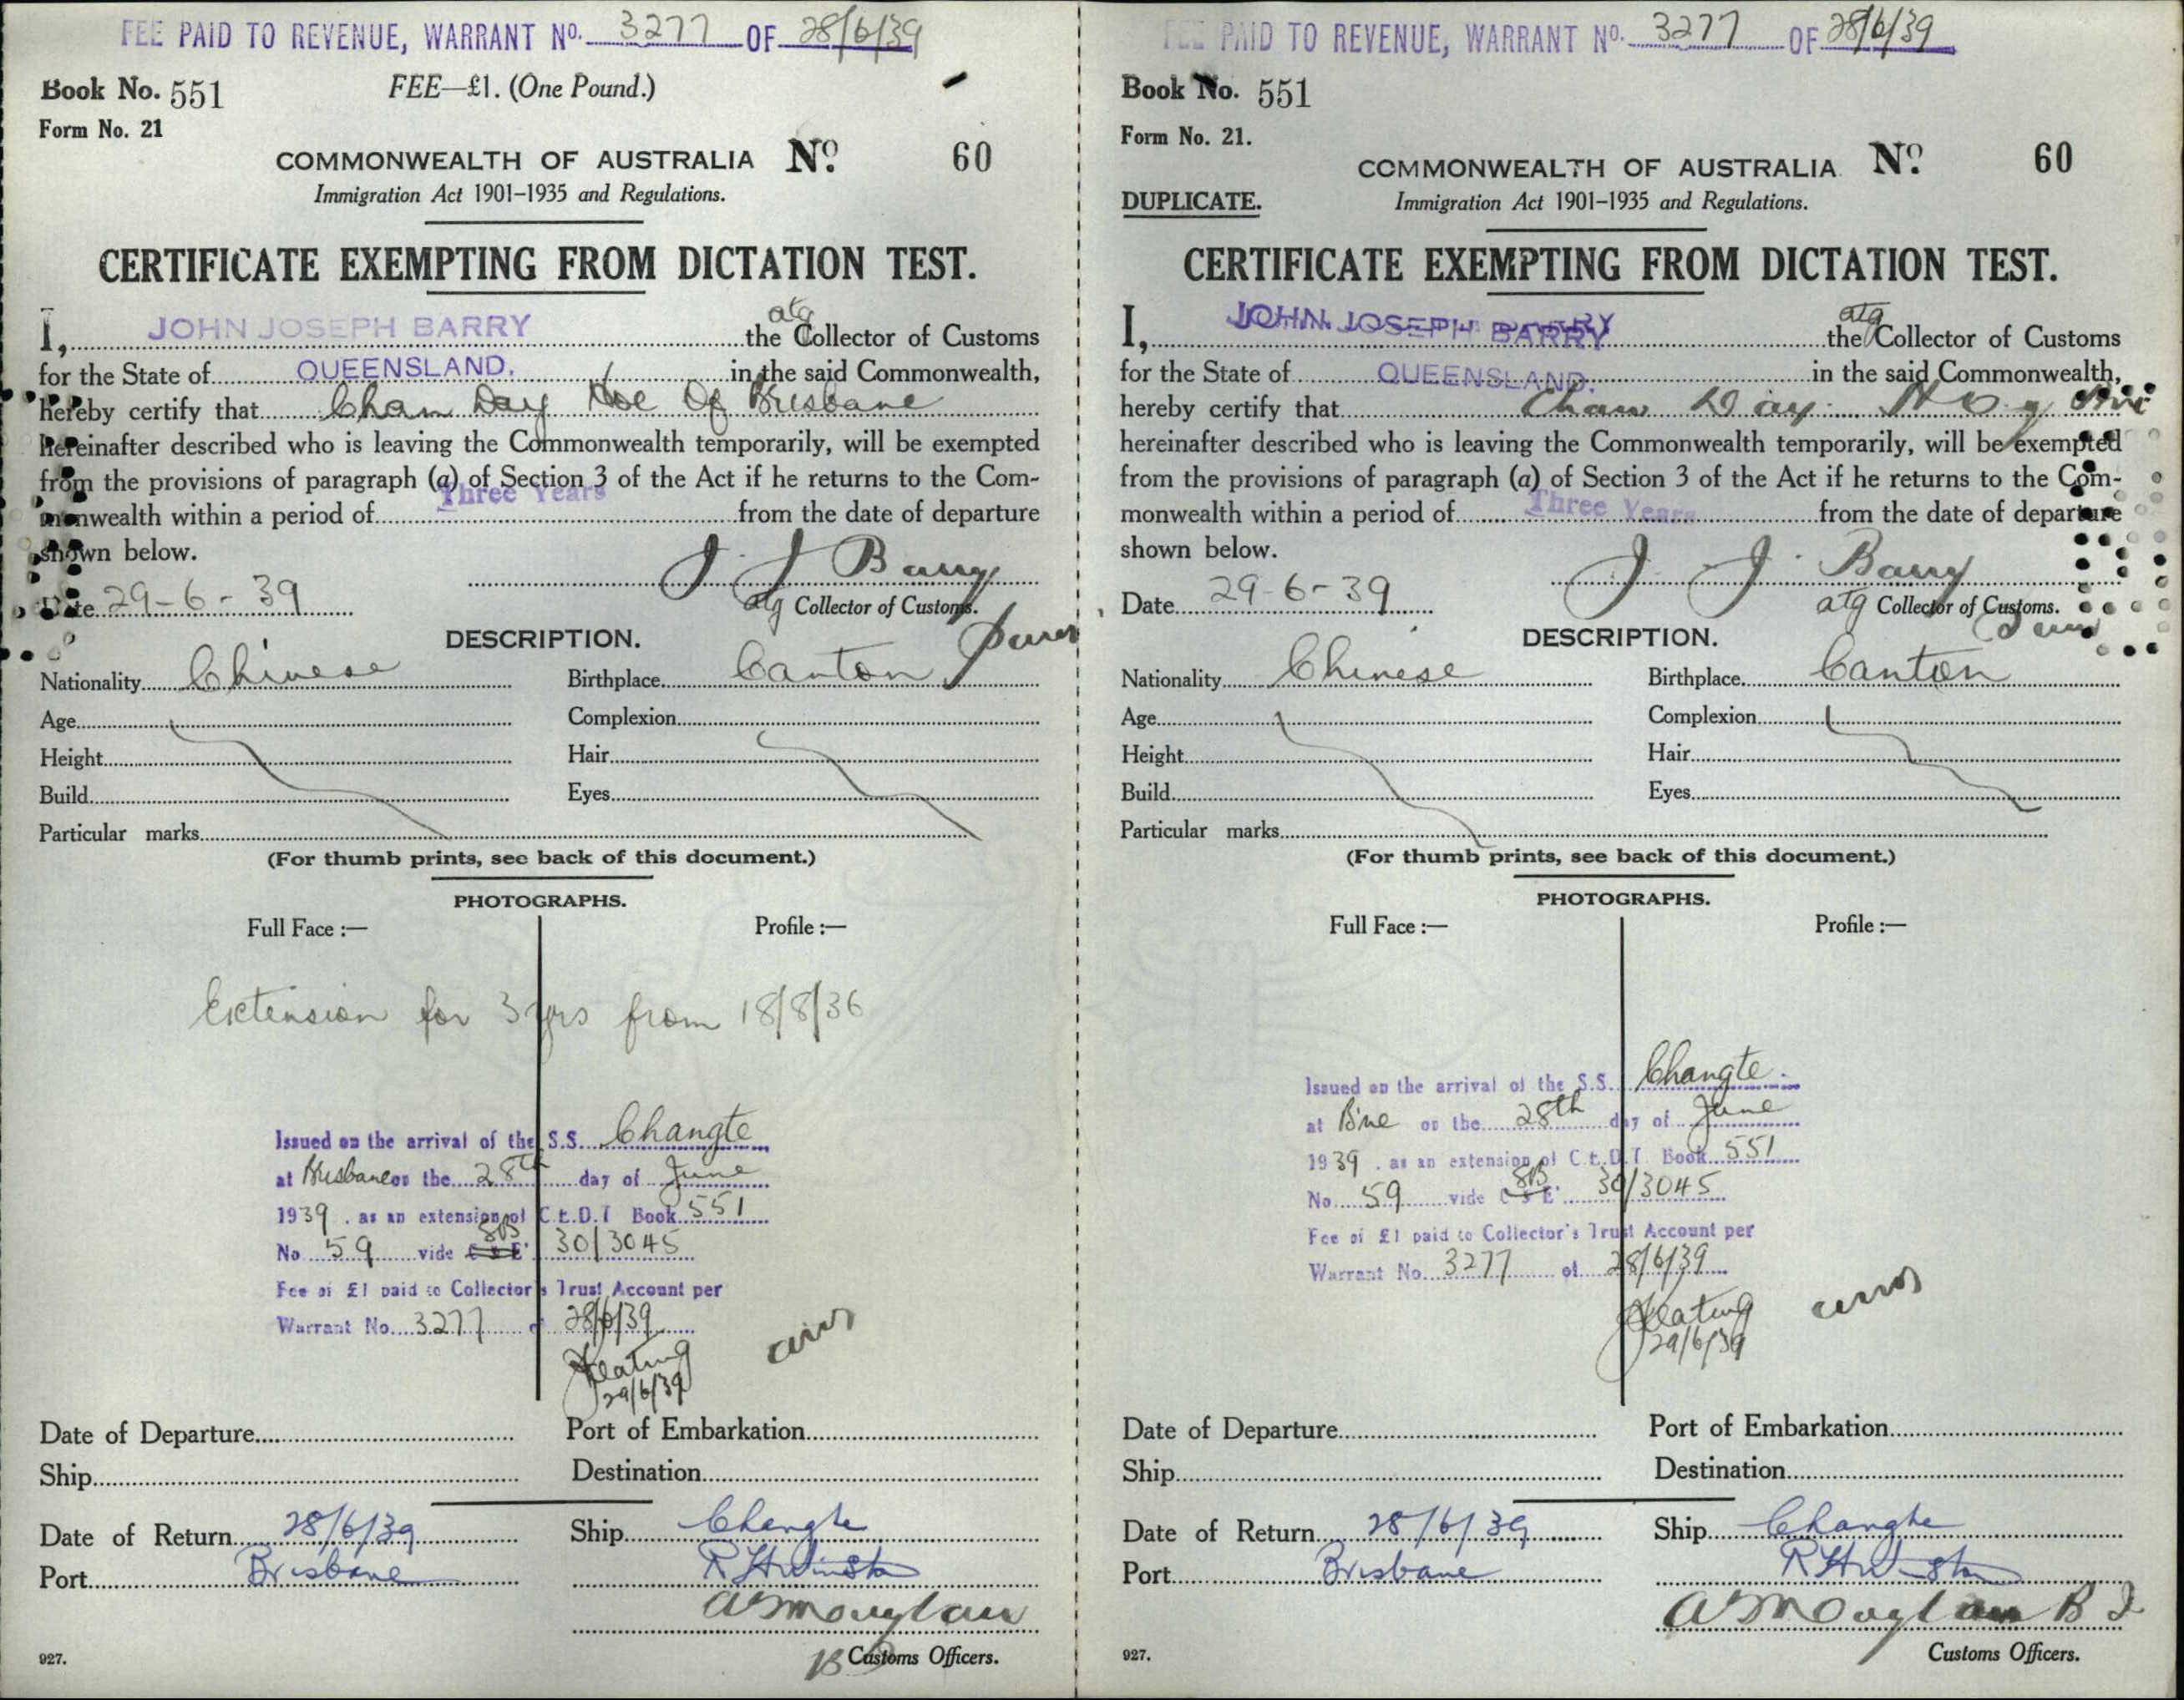 FEE PAID TO REVENUE, WARRANT No. 3277 OF 28/6/39
Book No. 551
FEE—£1. (One Pound.)
Form No. 21
COMMONWEALTH OF AUSTRALIA No. 60
Immigration Act 1901–1935 and Regulations.
CERTIFICATE EXEMPTING FROM DICTATION TEST.
I, JOHN JOSEPH BARRY the atg Collector of Customs
for the State of QUEENSLAND. in the said Commonwealth,
hereby certify that Cham Day Of Brisbane
hereinafter described who is leaving the Commonwealth temporarily, will be exempted
from the provisions of paragraph (a) of Section 3 of the Act if he returns to the Com-
monwealth within a period of Three Years from the date of departure
shown below.
J J Barry
Date 29-6-39
atg Collector of Customs.
DESCRIPTION.
Nationality Chinese Birthplace Canton
Age Complexion
Height Hair
Build Eyes
Particular marks
(For thumb prints, see back of this document.)
PHOTOGRAPHS.
Full Face :— Profile :—
Extension for 3 yrs from 18/8/36
Issued on the arrival of the S.S. Changte
at Brisbane on the 28th day of June
1939. as an extension of C.E.D.T Book 551
No 59 vide C & E' 30/3045
Fee of £1 paid to Collector's Trust Account per
Warrant No. 3277 of 28/6/39
Keating
29/6/39
Date of Departure Port of Embarkation
Ship Destination
Date of Return 28/6/39 Ship Changte
Port Brisbane
Customs Officers.
927.
FEE PAID TO REVENUE, WARRANT No. 3277 OF 28/6/39
Book No. 551
Form No. 21.
COMMONWEALTH OF AUSTRALIA No. 60
DUPLICATE.
Immigration Act 1901–1935 and Regulations.
CERTIFICATE EXEMPTING FROM DICTATION TEST.
I, JOHN JOSEPH BARRY the atg Collector of Customs
for the State of QUEENSLAND. in the said Commonwealth,
hereby certify that Day
hereinafter described who is leaving the Commonwealth temporarily, will be exempted
from the provisions of paragraph (a) of Section 3 of the Act if he returns to the Com-
monwealth within a period of Three Years from the date of departure
shown below.
J J. Barry
Date 29-6-39
atg Collector of Customs.
DESCRIPTION.
Nationality Chinese Birthplace Canton
Age Complexion
Height Hair
Build Eyes
Particular marks
(For thumb prints, see back of this document.)
PHOTOGRAPHS.
Full Face :— Profile :—
Issued on the arrival of the S.S. Changte.
at B'ne on the 28th day of June
1939. as an extension of C.E.D.T. Book 551
No 59 vide C & E' 30/3045
Fee of £1 paid to Collector's Trust Account per
Warrant No. 3277 of 28/6/39
Keating
29/6/39
Date of Departure Port of Embarkation
Ship Destination
Date of Return 28/6/39 Ship Changte
Port Brisbane
Customs Officers.
927.